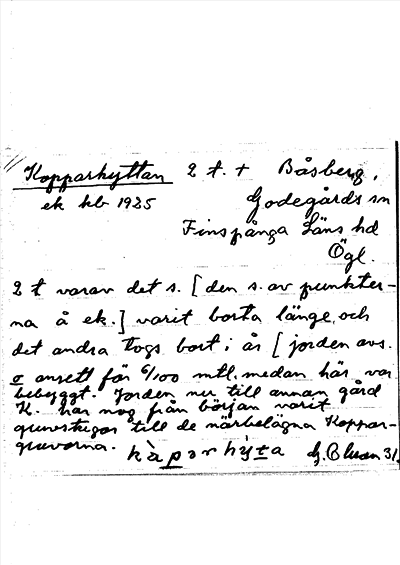 Kopparhyttan 2 t. + Båsberg,
ek kb 1925 Godegårds sn
Finspånga Läns hd
Ögl.
2 t varav det s. [den s. av punkter-
na å ek.] varit borta länge, och
det andra togs bort i år [jorden avs.
o ansett för 6/100 mtl. medan här var
bebyggt. Jorden nu till annan gård
K. har nog från början varit
gruvstugor till de närbelägna Koppar-
gruvorna. kàparhỳta G. Olsson 31.